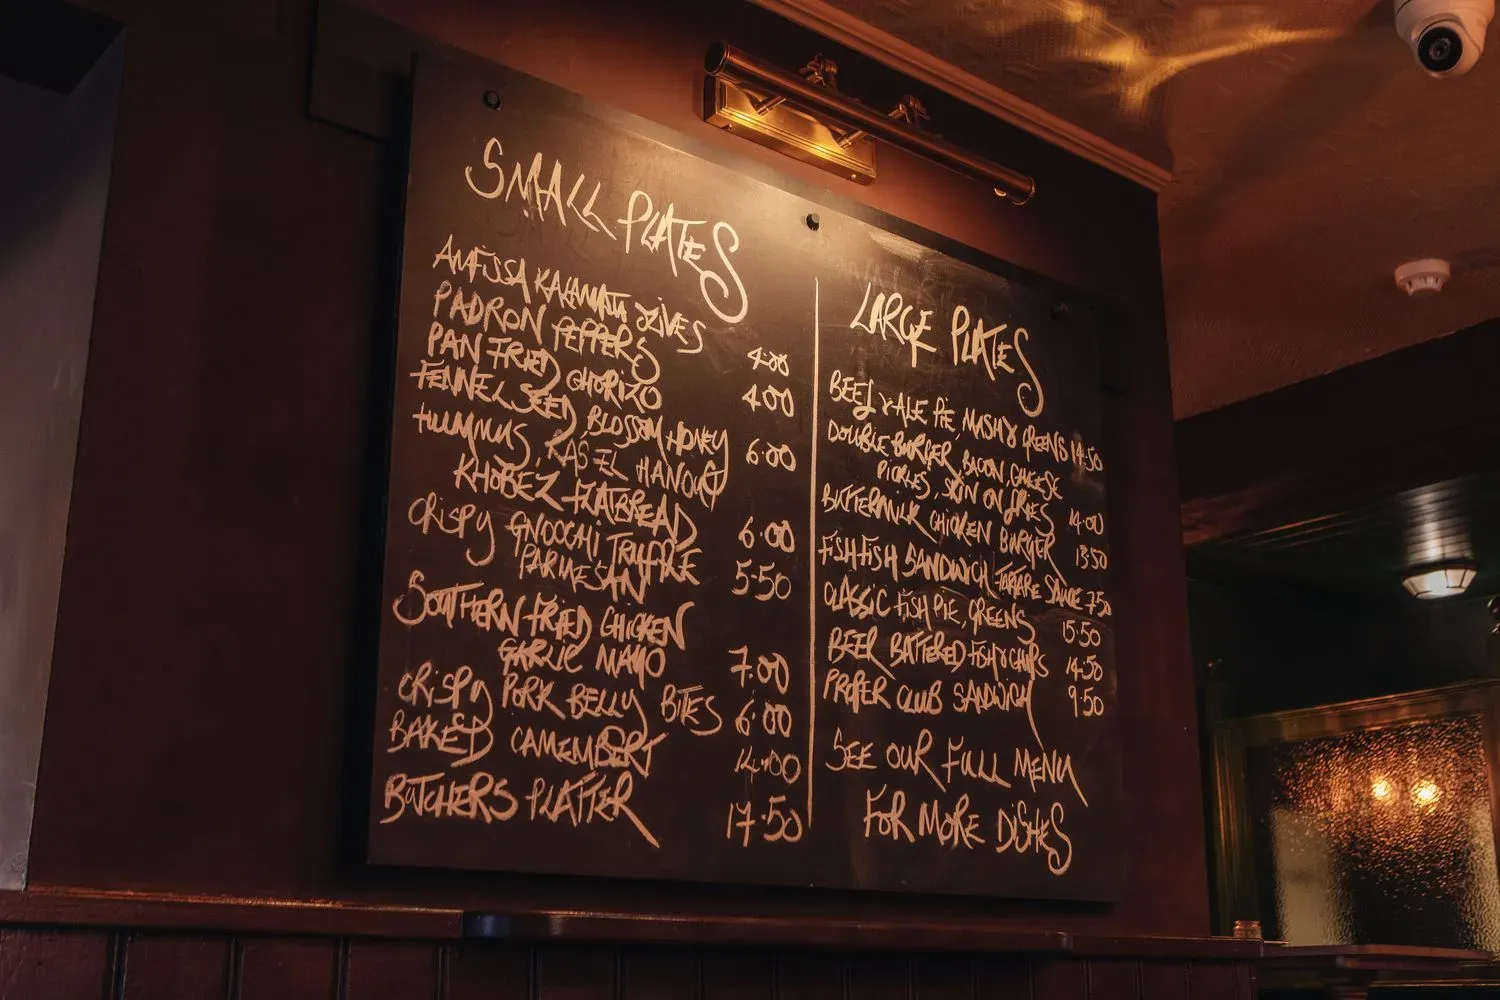 SMALL PLATES
ANFISSA KALAMATA OLIVES 4.00
PADRON PEPPERS 4.00
PAN FRIED CHORIZO
FENNEL SEED, BLOSSOM HONEY 6.00
HUMMUS, RAS EL HANOUT
KHOBEZ FLATBREAD 6.00
CRISPY GNOCCHI TRUFFLE
PARMESAN 5.50
SOUTHERN FRIED CHICKEN
GARLIC MAYO 7.00
CRISPY PORK BELLY BITES 6.00
BAKED CAMEMBERT 14.00
BUTCHERS PLATTER 17.50
LARGE PLATES
BEEF & ALE PIE, MASH & GREENS 14.50
DOUBLE BURGER, BACON, CHEESE
PICKLES, SKIN ON FRIES 14.00
BUTTERMILK CHICKEN BURGER 13.50
FISHFISH SANDWICH, TARTARE SAUCE 7.50
CLASSIC FISH PIE, GREENS 15.50
BEER BATTERED FISH & CHIPS 14.50
PROPER CLUB SANDWICH 9.50
SEE OUR FULL MENU
FOR MORE DISHES